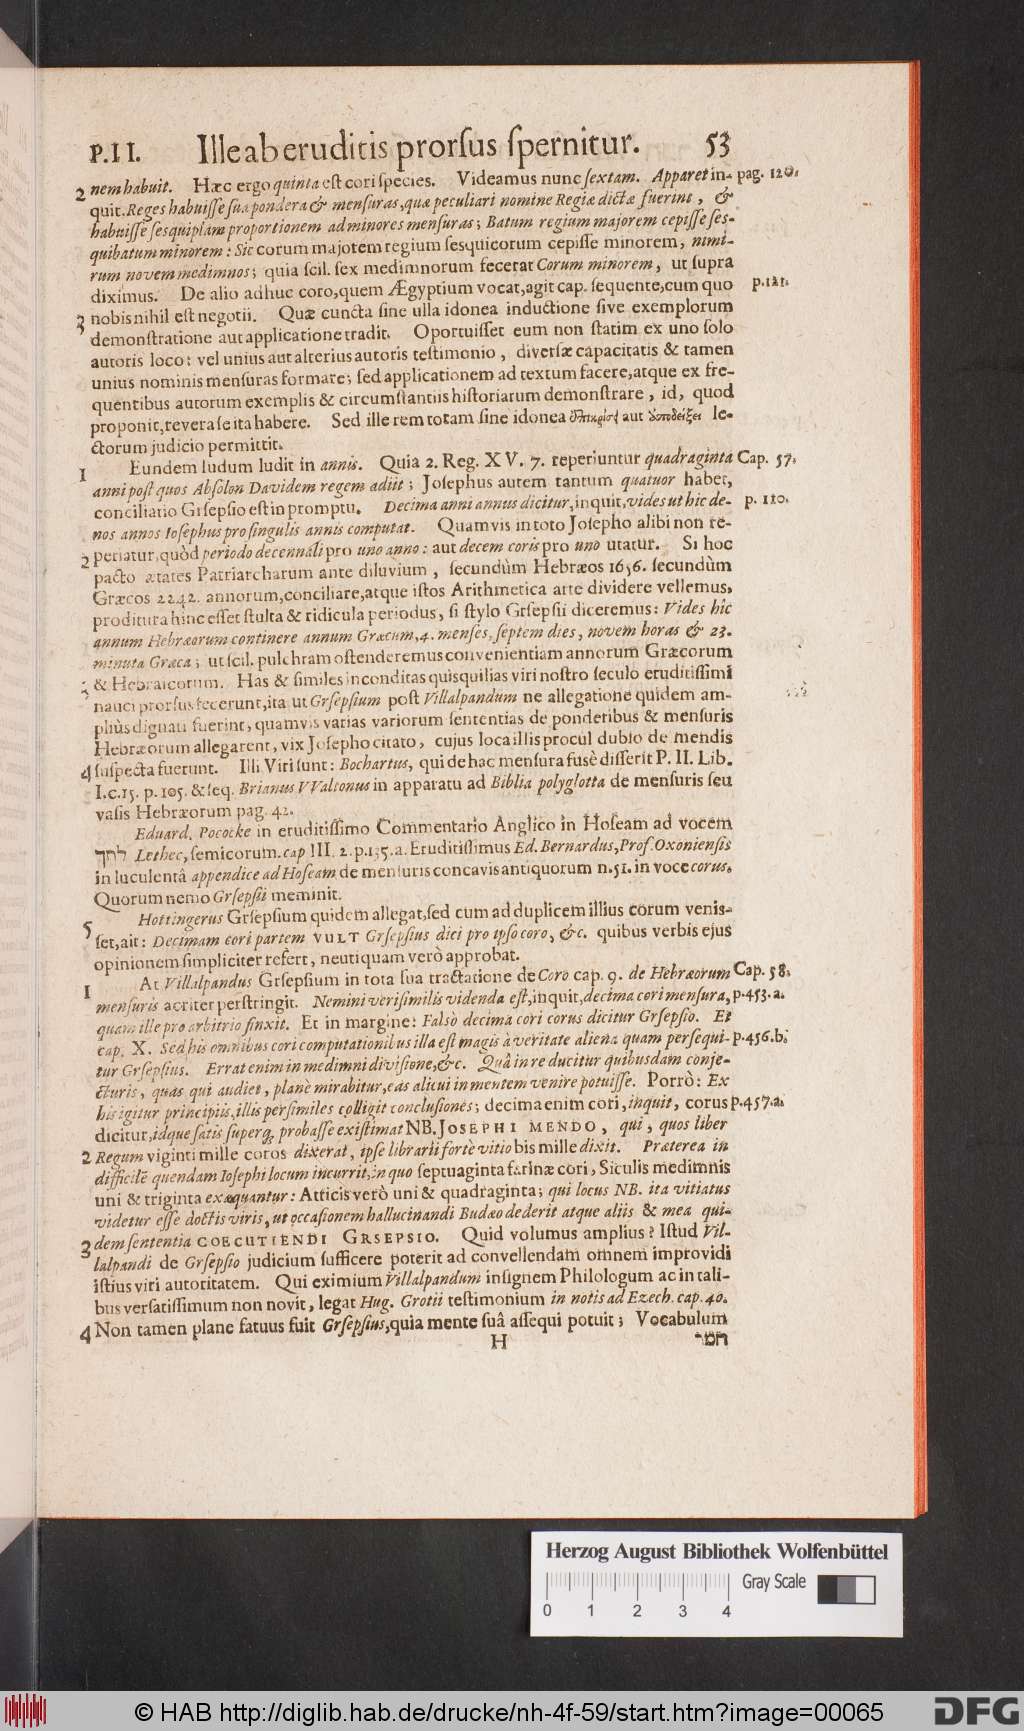 P. II. Ille ab eruditis prorſus ſpernitur. 53
2 nem habuit. Hæc ergo quinta eſt cori ſpecies. Videamus nunc ſextam. Apparet in- pag. 120.
quit. Reges habuiſſe ſua pondera & menſuras, quæ peculiari nomine Regiæ dictæ fuerint, &
habuiſſe ſesquiplam proportionem ad minores menſuras; Batum regium majorem cepiſſe ſes-
quibatum minorem: Sic corum majorem regium ſesquicorum cepiſſe minorem, nimi-
rum novem medimnos; quia ſcil. ſex medimnorum fecerat Corum minorem, ut ſupra
diximus. De alio adhuc coro, quem Ægyptium vocat, agit cap. ſequente, cum quo p. 121.
3 nobis nihil eſt negotii. Quæ cuncta ſine ulla idonea inductione ſive exemplorum
demonſtratione aut applicatione tradit. Oportuiſſet eum non ſtatim ex uno ſolo
autoris loco: vel unius aut alterius autoris teſtimonio, diverſæ capacitatis & tamen
unius nominis menſuras formare; ſed applicationem ad textum facere, atque ex fre-
quentibus autorum exemplis & circumſtantiis hiſtoriarum demonſtrare, id, quod
proponit, revera ſe ita habere. Sed ille rem totam ſine idonea aut le-
ctorum judicio permittit.
1 Eundem ludum ludit in annis. Quia 2. Reg. XV. 7. reperiuntur quadraginta Cap. 57.
anni poſt quos Abſolon Davidem regem adiit; Joſephus autem tantum quatuor habet,
conciliatio Grſepſio eſt in promptu. Decima anni annus dicitur, inquit, vides ut hic de- p. 110.
nos annos Ioſephus pro ſingulis annis computat. Quamvis in toto Joſepho alibi non re-
2 periatur, quòd periodo decennâli pro uno anno: aut decem coris pro uno utatur. Si hoc
pacto ætates Patriarcharum ante diluvium, ſecundùm Hebræos 1656. ſecundùm
Græcos 2242. annorum, conciliare, atque iſtos Arithmetica arte dividere vellemus,
proditura hinc eſſet ſtulta & ridicula periodus, ſi ſtylo Grſepſii diceremus: Vides hîc
annum Hebræorum continere annum Græcum, 4. menſes, ſeptem dies, novem horas & 23.
minuta Græca; ut ſcil. pulchram oſtenderemus convenientiam annorum Græcorum
3 & Hebraicorum. Has & ſimiles inconditas quisquilias viri noſtro ſeculo eruditiſſimi
nauci prorſus fecerunt, ita ut Grſepſium poſt Villalpandum ne allegatione quidem am-
pliùs dignati fuerint, quamvis varias variorum ſententias de ponderibus & menſuris
Hebræorum allegarent, vix Joſepho citato, cujus loca illis procul dubio de mendis
4 ſuſpecta fuerunt. Illi Viri ſunt: Bochartus, qui de hac menſura fusè diſſerit P. II. Lib.
I. c. 15. p. 105. & ſeq. Brianus VValtonus in apparatu ad Biblia polyglotta de menſuris ſeu
vaſis Hebræorum pag. 42.
Eduard. Pococke in eruditiſſimo Commentario Anglico in Hoſeam ad vocem
לתך Lethec, ſemicorum. cap III. 2. p. 135. a. Eruditiſſimus Ed. Bernardus, Prof. Oxonienſis
in luculentâ appendice ad Hoſeam de menſuris concavis antiquorum n. 51. in voce corus.
Quorum nemo Grſepſii meminit.
5 Hottingerus Grſepſium quidem allegat, ſed cum ad duplicem illius corum veniſ-
ſet, ait: Decimam cori partem VULT Grſepſius dici pro ipſo coro, &c. quibus verbis ejus
opinionem ſimpliciter refert, neutiquam verò approbat.
1 At Villalpandus Grſepſium in tota ſua tractatione de Coro cap. 9. de Hebræorum Cap. 58.
menſuris acriter perſtringit. Nemini veriſimilis videnda eſt, inquit, decima cori menſura, p. 453. a.
quam ille pro arbitrio finxit. Et in margine: Falsò decima cori corus dicitur Grſepſio. Et
cap. X. Sed his omnibus cori computationibus illa eſt magis à veritate aliena quam perſequi- p. 456. b.
tur Grſepſius. Errat enim in medimni diviſione, &c. Quâ in re ducitur quibusdam conje-
cturis, quas qui audiet, planè mirabitur, eas alicui in mentem venire potuiſſe. Porrò: Ex
his igitur principiis, illis perſimiles colligit concluſiones; decima enim cori, inquit, corus p. 457. a.
dicitur, idque ſatis ſuperq; probaſſe exiſtimat NB. JOSEPHI MENDO, qui, quos liber
2 Regum viginti mille coros dixerat, ipſe librarii fortè vitio bis mille dixit. Præterea in
difficilẽ quendam Ioſephi locum incurrit, in quo ſeptuaginta farinæ cori, Siculis medimnis
uni & triginta exæquantur: Atticis verò uni & quadraginta; qui locus NB. ita vitiatus
videtur eſſe doctis viris, ut occaſionem hallucinandi Budæo dederit atque aliis & mea qui-
3 dem ſententia COECUTIENDI GRSEPSIO. Quid volumus amplius? Iſtud Vil-
lalpandi de Grſepſio judicium ſufficere poterit ad convellendam omnem improvidi
iſtius viri autoritatem. Qui eximium Villalpandum inſignem Philologum ac in tali-
bus verſatiſſimum non novit, legat Hug. Grotii teſtimonium in notis ad Ezech. cap. 40.
4 Non tamen plane fatuus fuit Grſepſius, quia mente ſuâ aſſequi potuit; Vocabulum
H חמר
Herzog August Bibliothek Wolfenbüttel
Gray Scale
0 1 2 3 4
© HAB http://diglib.hab.de/drucke/nh-4f-59/start.htm?image=00065
DFG